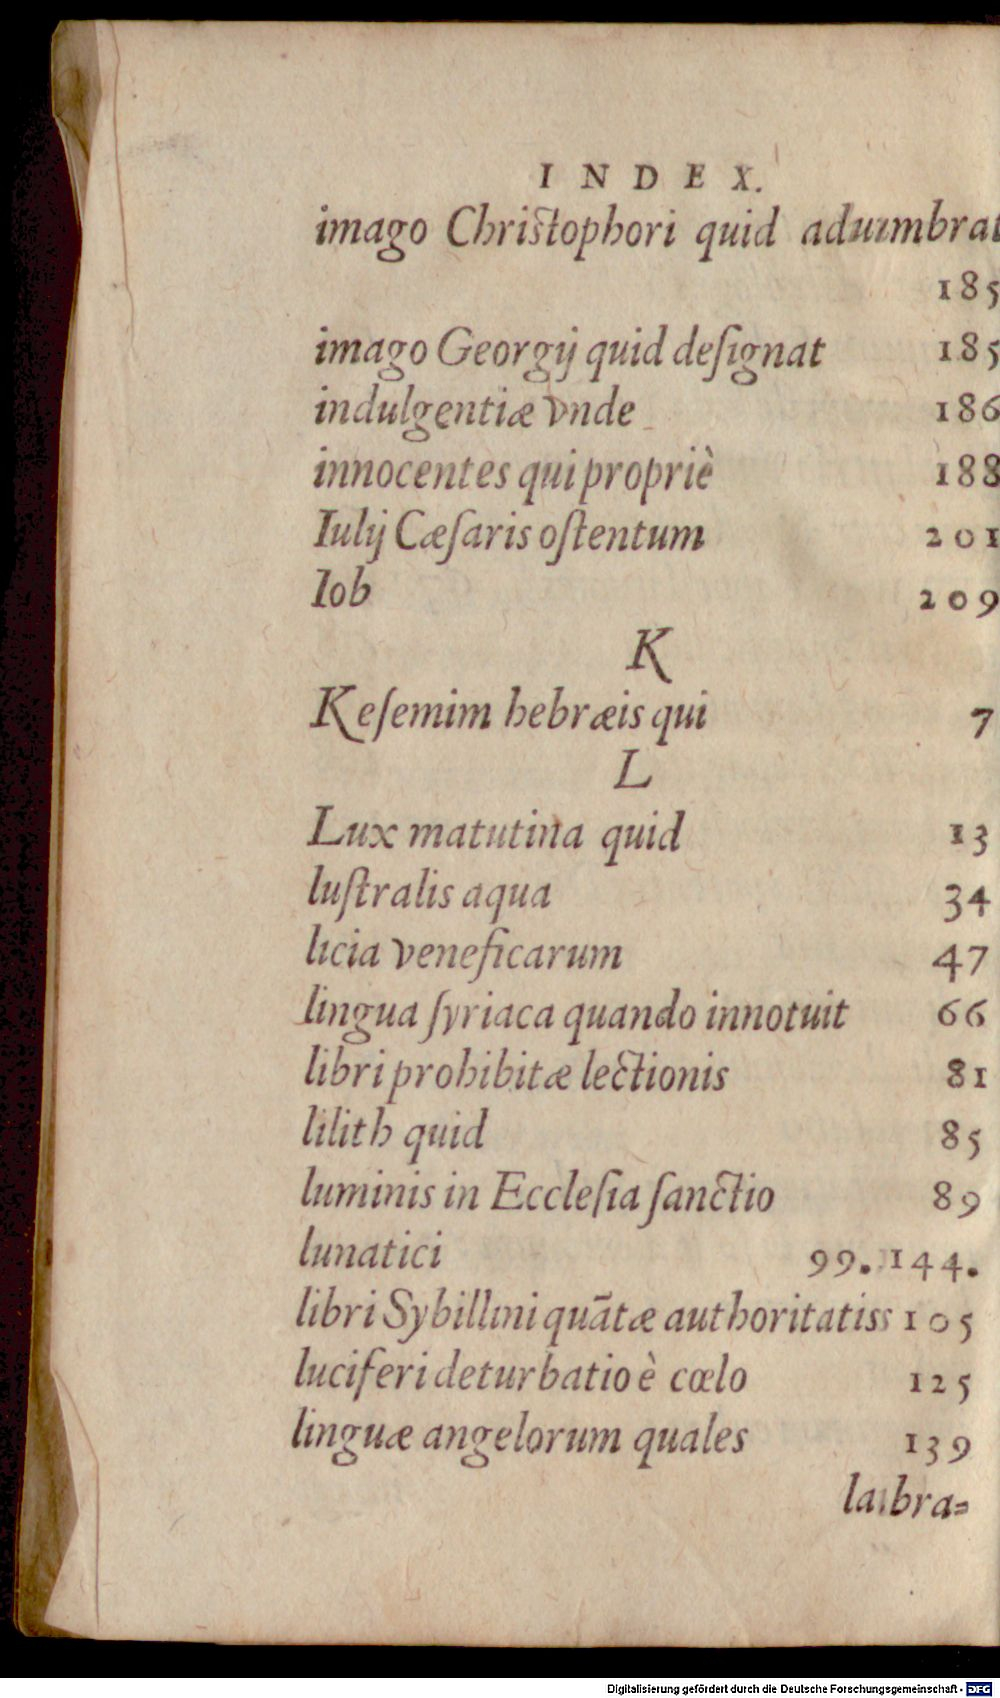 INDEX.
imago Christophori quid adumbrat
185
imago Georgij quid deſignat 185
indulgentiæ vnde 186
innocentes qui propriè 188
Iulij Cæſaris oſtentum 201
Iob 209
K
Keſemim hebræis qui 7
L
Lux matutina quid 13
luſtralis aqua 34
licia veneficarum 47
lingua ſyriaca quando innotuit 66
libri prohibitæ lectionis 81
lilith quid 85
luminis in Eccleſia ſanctio 89
lunatici 99. 144.
libri Sybillini quātæ authoritatis 105
luciferi deturbatio è cœlo 125
linguæ angelorum quales 139
Digitalisierung gefördert durch die Deutsche Forschungsgemeinschaft - DFG